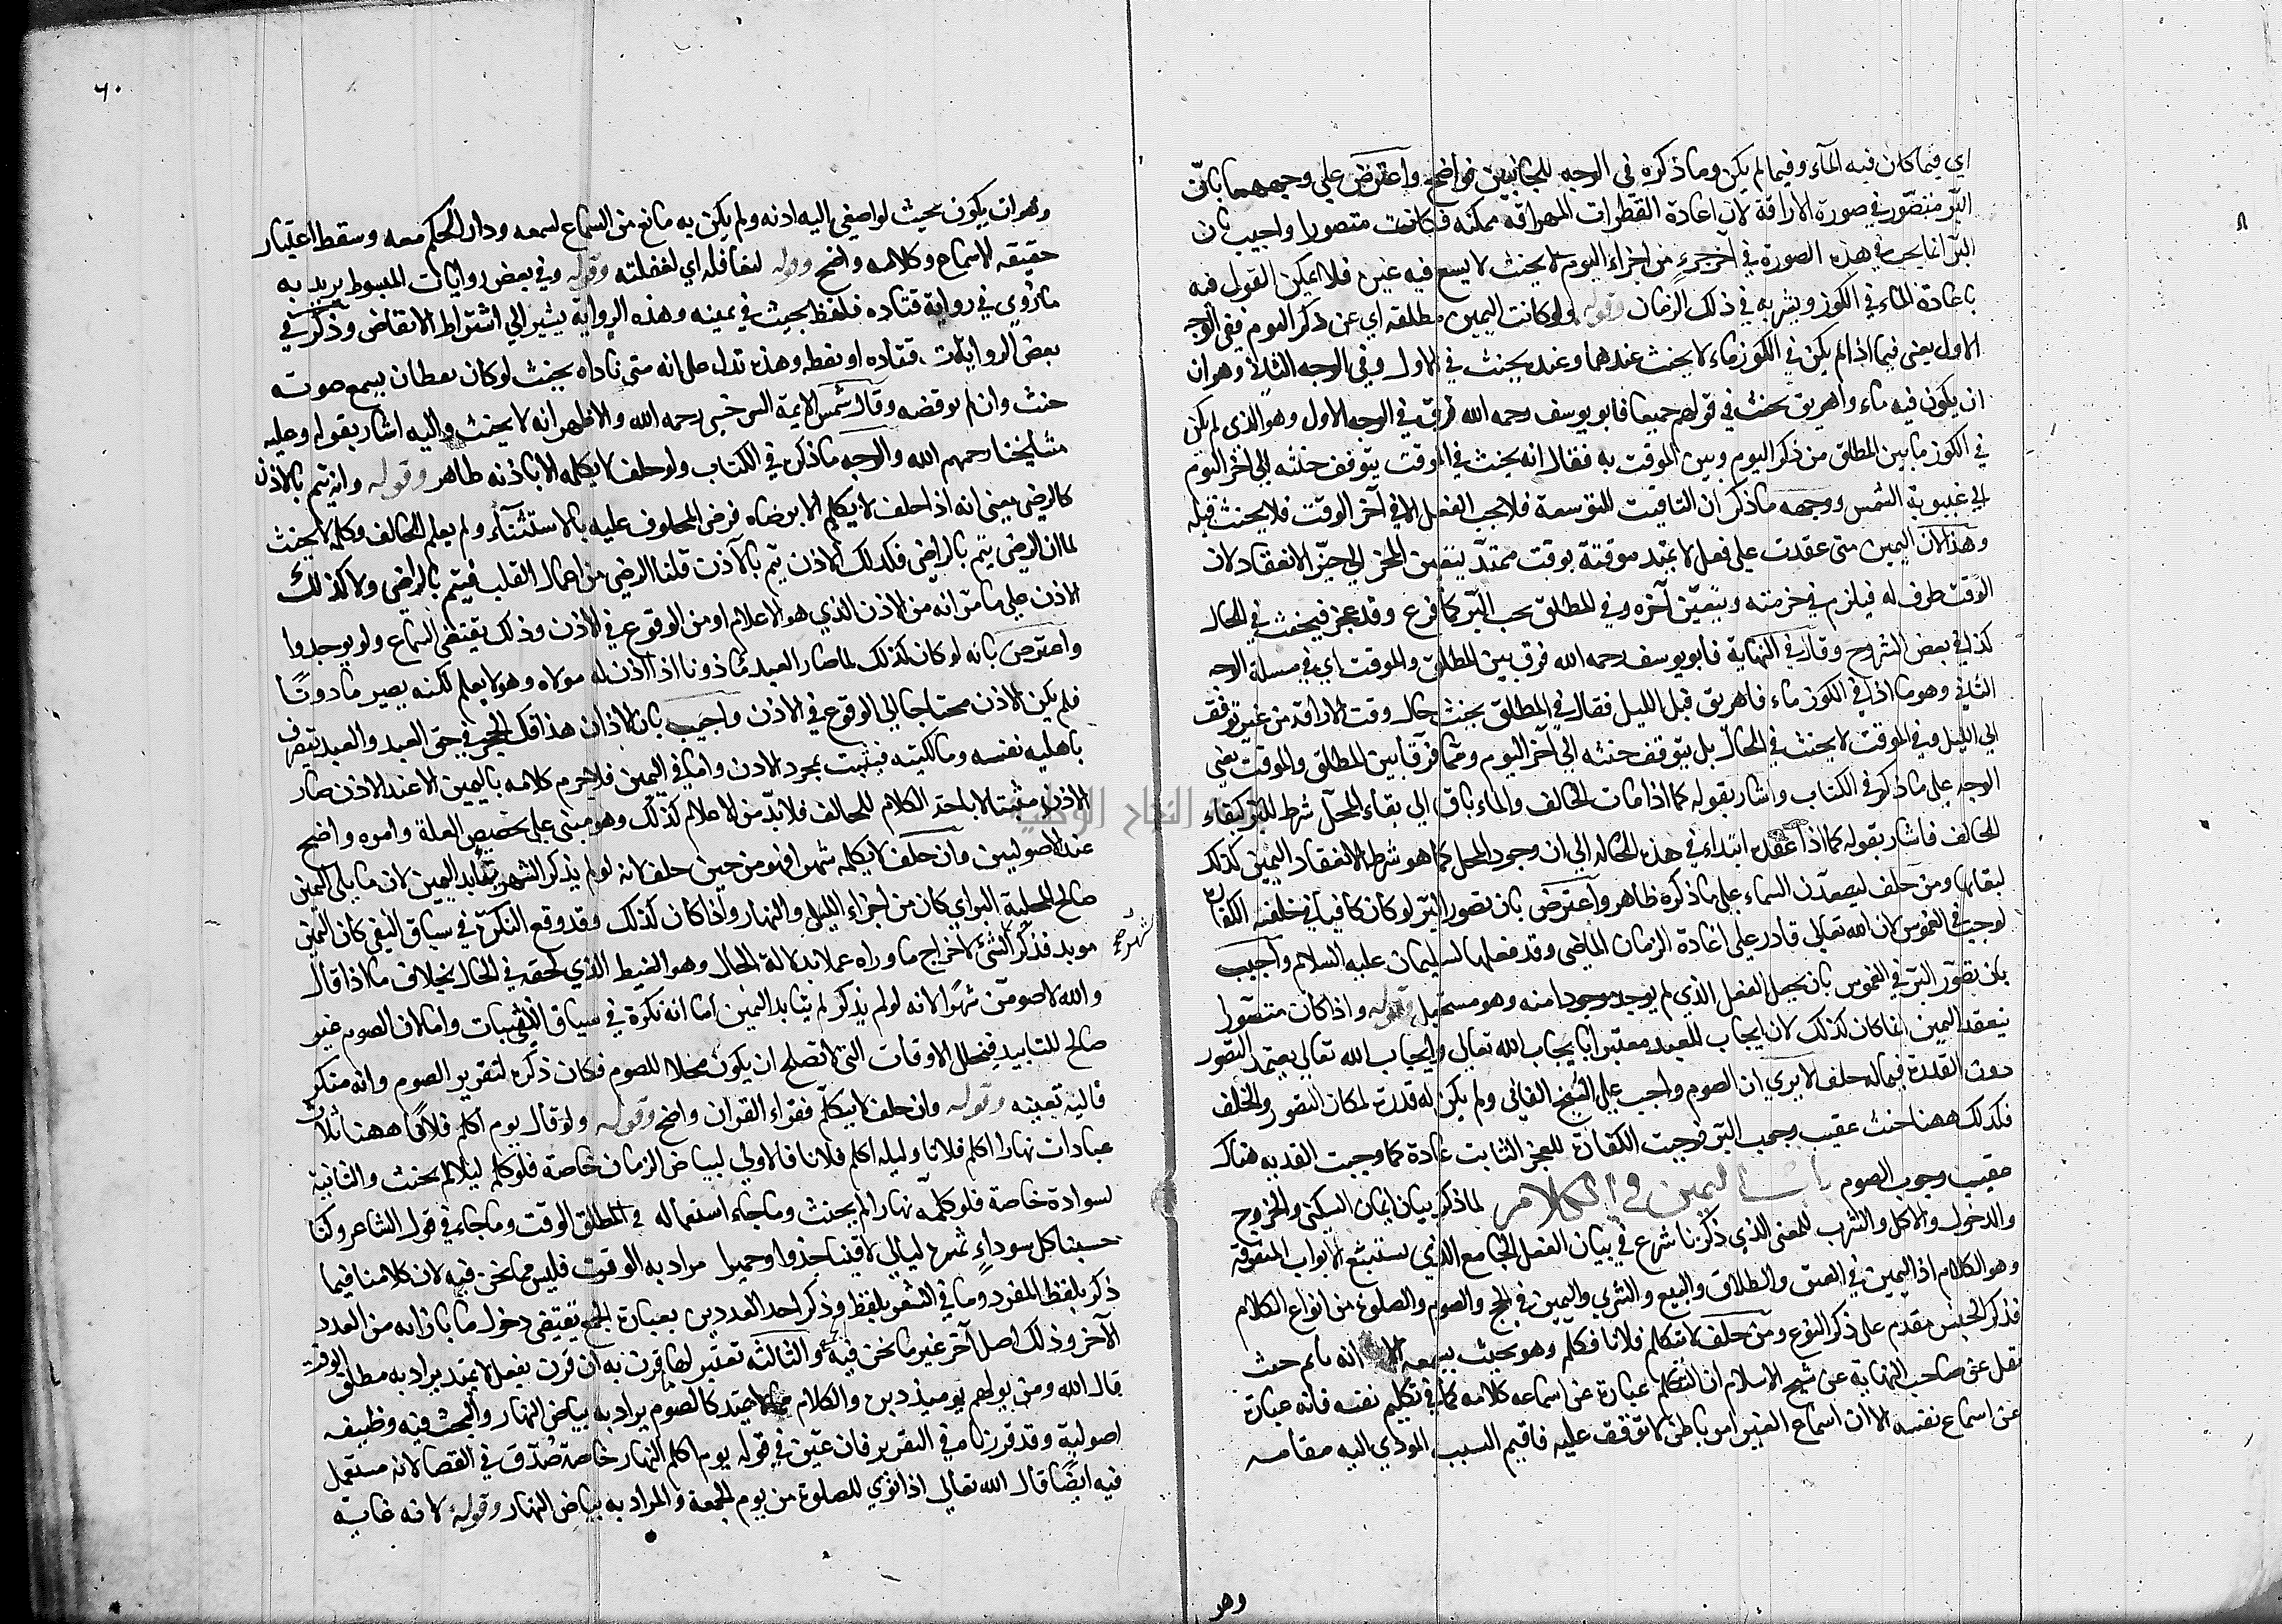 اي فيما كان فيه الماء وفيما لم يكن وما ذكره في الوجه للجانبين فواضح واعترض علي وجههما بان
البر متصور في صورة الاراقة لان اعادة القطرات المهراقه ممكنه فكانت متصورا واجيب بان
البر انما يجب في هذه الصورة في آخر جزء من اجزاء اليوم لا يسع فيه غيره فلا يمكن القول فيه
باعادة الماء في الكوز وشربه في ذلك الزمان وقوله ولو كانت اليمين مطلقه اي عن ذكر اليوم ففي الوجه
الاول يعني فيما اذا لم يكن في الكوز ماء لا يحنث عندهما وعنده يحنث في الاول وفي الوجه الثاني وهو ان
ان يكون فيه ماء واهريق يحنث في قولهم جميعا فابو يوسف رحمه الله فرق في الوجه الاول وهو الذي لم يكن
في الكوز ماء بين المطلق من ذكر اليوم وبين الموقت به فقال انه يحنث في الموقت يتوقف حنثه الي آخر اليوم
الي غيبوبة الشمس ووجهه ما ذكر ان التاقيت للتوسعة فلا يجب الفعل الا في آخر الوقت فلا يحنث قبله
وهذا لان اليمين متى عقدت علي فعل لا يمتد موقتة بوقت ممتد يتعين الجزء الي حيز الانعقاد لان
الوقت ظرف له فيلزم في جزء منه ويتعين آخره وفي المطلق يجب البر كما فرغ وقد عجز فيحنث في الحال
كذا في بعض الشروح وقال في النهاية فابو يوسف رحمه الله فرق بين المطلق والموقت اي في مسلة الوجه
الثاني وهو ما اذا في الكوز ماء فاهريق قبل الليل فقال في المطلق يحنث حال وقت الاراقة من غير توقف
الي الليل وفي الموقت لا يحنث في الحال بل يتوقف حنثه الي آخر اليوم وهما فرقا بين المطلق والموقت يعني
الوجه علي ما ذكر في الكتاب واشار بقوله كما اذا مات الحالف والماء باق الي بقاء المحل شرط للبر كبقاء
الحالف فاشار بقوله كما اذا عقده ابتداء في هذه الحالة الي ان وجود المحل كما هو شرط الانعقاد اليمين كذلك
لبقائها ومن حلف ليصعدن السماء علي ما ذكره ظاهر واعترض بان تصور البر لو كان كافيا في خلفه الكفارة
لوجب في الغموس لان الله تعالي قادر علي اعادة الزمان الماضي وقد فعلها لسليمان عليه السلام واجيب
بان تصور البر في الغموس بان يجعل الفعل الذي لم يوجد موجودا منه وهو مستحيل وقوله واذا كان متصورا
ينعقد اليمين انما كان كذلك لان ايجاب العبد معتبر بايجاب الله تعالي وايجاب الله تعالي يعتمد التصور
دون القدرة فيما له خلف الا يري ان الصوم واجب علي الشيخ الفاني ولم يكن له قدرة لمكان التصور والخلف
فكذلك ههنا حنث عقيب وجوب البر فوجبت الكفارة للعجز الثابت عادة كما وجبت الفدية هناك
عقيب وجوب الصوم باب اليمين في الكلام لما ذكر بيان ايمان السكنى والخروج
والدخول والاكل والشرب للمعني الذي ذكرنا شرع في بيان الفعل الجامع الذي يستتبع الابواب المتفرقة
وهو الكلام اذ اليمين في العتق والطلاق والبيع والشري واليمين في الحج والصوم والصلوة من انواع الكلام
فذكر الجنس مقدم علي ذكر النوع ومن حلف لا يتكلم فلانا فكلم وهو بحيث يسمعه الا انه نائم حنث
نقل عن صاحب النهاية عن شيخ الاسلام ان التكلم عبارة عن اسماعه كلامه كما في تكليم نفسه فانه عبارة
عن اسماع نفسه الا ان اسماع الغير امر باطن لا توقف عليه فاقيم السبب المودي اليه مقامه
وهو
٦٠
وهو ان يكون بحيث لو اصغي اليه اذنه ولم يكن به مانع من السماع لسمعه ودار الحكم معه وسقط اعتبار
حقيقه الاسماع وكلامه واضح وقوله لتغافله اي لغفلته وقوله وفي بعض روايات المبسوط يريد به
ما روي في رواية فناداه فايقظه بحيث في يمينه وهذه الرواية يشير الي اشتراط الايقاظ وذكر في
بعض الروايات فناداه او ايقظه وهذه تدل على انه متى ناداه بحيث لو كان يقظان يسمع صوته
حنث وان لم يوقظه وقال شمس الايمة السرخسي رحمه الله والاظهر انه لا يحنث واليه اشار بقوله وعليه
مشايخنا رحمهم الله والوجه ما ذكره في الكتاب ولو حلف لا يكلمه الا باذنه ظاهر وقوله وانه يتم بالاذن
كالرضي يعني انه اذا حلف لا يكلم الا برضاه فرضي المحلوف عليه بالاستثناء ولم يعلم الحالف وكلمه لا يحنث
لما ان الرضي يتم بالراضي فكذلك الاذن يتم بالآذن قلنا الرضي من اعمال القلب فيتم بالراضي ولا كذلك
الاذن علي ما مر انه من الاذن الذي هو الاعلام او من الوقوع في الاذن وذلك يقتضي السماع ولو يوجدوا
واعترض بانه لو كان كذلك لما صار العبد ماذونا اذا اذن له مولاه وهو لا يعلم لكنه يصير ماذونا
فلم يكن الاذن محتاجا الي الوقوع في الاذن واجيب بان الاذان هذا فك الحجر في حق العبد والعبد يتصرف
باهلية نفسه ومالكيته فيثبت بمجرد الاذن واما في اليمين فلا يحرم كلامه باليمين الا عند الاذن صار
الاذن مثبتا لاباحة الكلام للحالف فلا بد من الاعلام كذلك وهو مبني علي تخصيص العلة وامره واضح
عند الاصوليين وان حلف لا يكلمه شهرا فهو من حين حلف لانه لو لم يذكر الشهر تتابد اليمين لان ما يلي اليمين
صالح للجلية اليراي كان من اجزاء الليل والنهار واذا كان كذلك وقد وقع النكرة في سياق النفي كان اليمين
موبد فذكر الشئ لاخراج ما وراه عملا بدلالة الحال وهو الغيظ الذي لحقه في الحال بخلاف ما اذا قال
والله لاصومن شهرا لانه لو لم يذكر لم يتابد اليمين اما انه نكرة في سياق الاثبات واما لان الصوم غير
صالح للتابيد فيتخلل الاوقات التي لا تصلح ان يكون محلا للصوم فكان ذكره لتقرير الصوم وانه منكر
فاليه تعيينه وقوله وان حلف لا يتكلم فقراء القران واضح وقوله ولو قال يوم اكلم فلانا ههنا ثلاث
عبادات نهارا اكلم فلانا وليله اكلم فلانا فالاولي لبياض الزمان خاصة فلو كلمه ليلا لم يحنث والثانية
لسوادة خاصة فلو كلمه نهارا لم يحنث وما جاء استعماله في المطلق الوقت وما جاء في قول الشاعر وكنا
حسبنا كل سوداء تمرة ليالي لاقينا حذوا وحميرا مراد به الوقت فليس مما نحن فيه لان كلامنا فيما
ذكر بلفظ المفرد وما في الشعر بلفظ وذكر احد العددين بعبارة الجمع يقتضي دخول ما بازايه من العدد
الآخر وذلك اصل آخر غير ما نحن فيه والثالثة تعتبر لما قرن به ان قرن بفعل لا يمتد يراد به مطلق الوقت
قال الله ومن يولهم يوميذ دبره والكلام مما لا يمتد كالصوم يراد به بياض النهار والبحث فيه وظيفه
اصولية وقد قررناه في التقرير فان عني في قوله يوم اكلم النهار خاصة صدق في القضا لانه مستعمل
فيه ايضا قال الله تعالي اذا نودي للصلوة من يوم الجمعة والمراد به بياض النهار وقوله لانه غاية